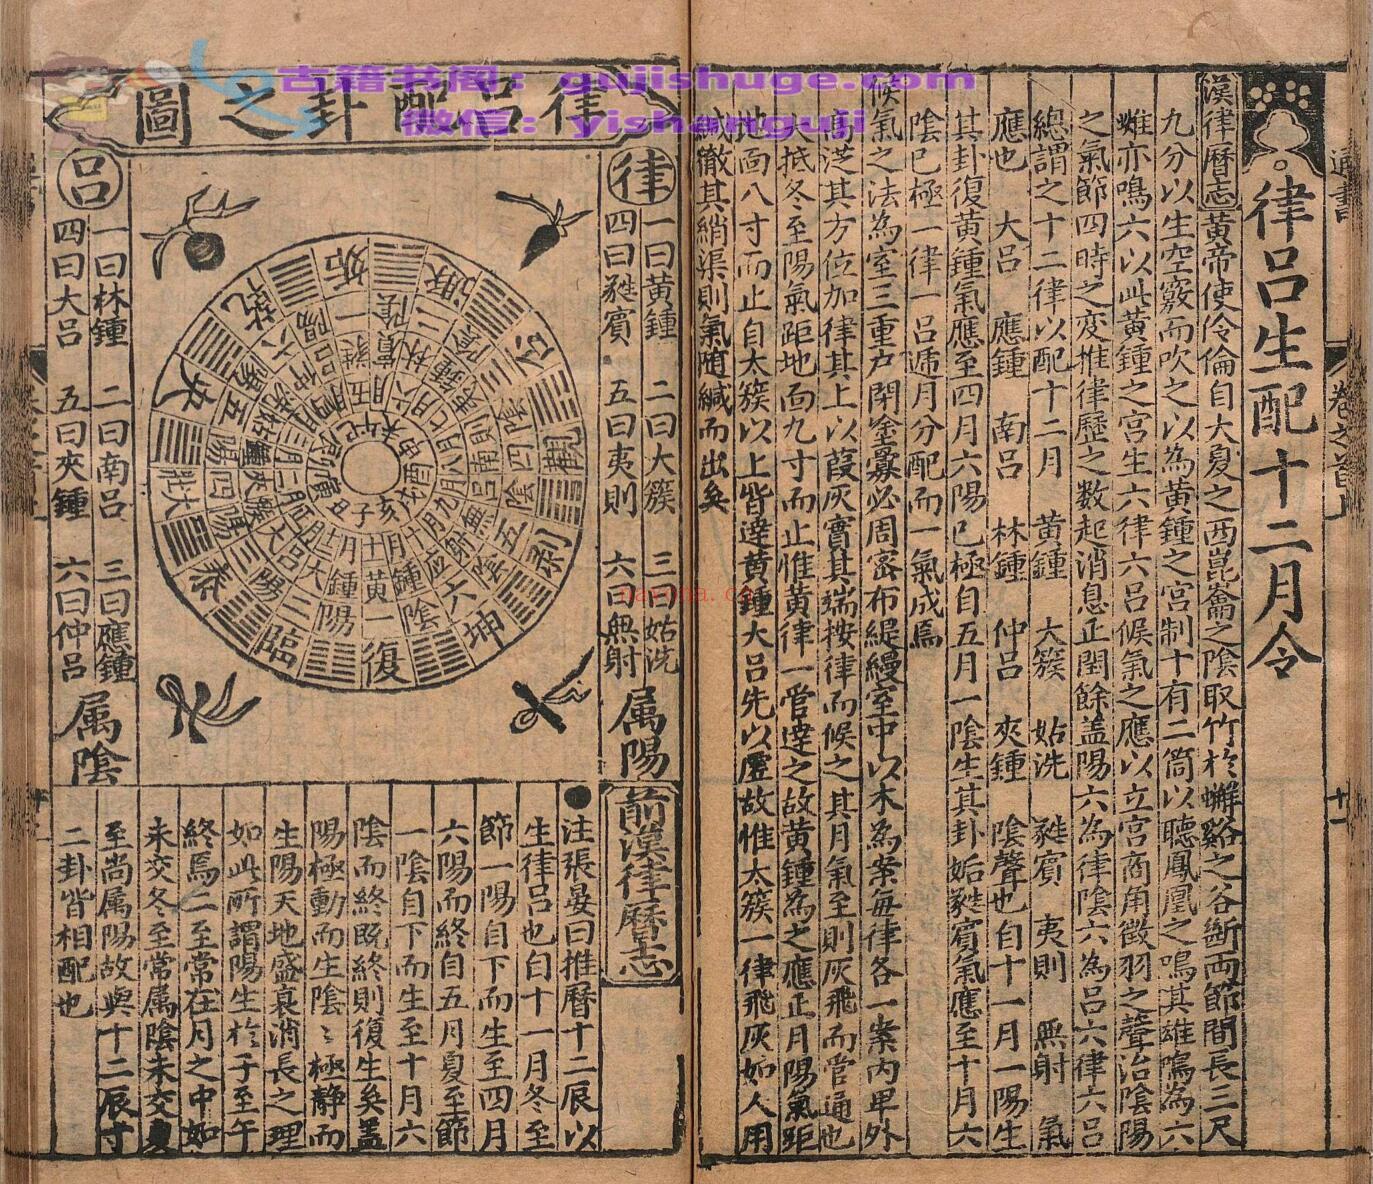 古籍书阁：gujishuge.com
微信：yishanguji
通書
卷之首
十一
律呂生配十二月令
漢律曆志黃帝使伶倫自大夏之西崑崙之陰取竹於嶰谿之谷斷兩節間長三尺
九分以生空竅而吹之以為黃鍾之宮制十有二筒以聽鳳凰之鳴其雄鳴為六
雌亦鳴六以此黃鍾之宮生六律六呂候氣之應以立宮商角徵羽之聲治陰陽
之氣節四時之变推律歷之数起消息正閏餘盖陽六為律陰六為呂六律六呂
總謂之十二律以配十二月 黃鍾 大簇 姑洗 蕤賓 夷則 無射 氣
應也 大呂 應鍾 南呂 林鍾 仲呂 夾鍾 陰聲也自十一月一陽生
其卦復黃鍾氣應至四月六陽已極自五月一陰生其卦姤蕤賓氣應至十月六
陰已極一律一呂逓月分配而一氣成焉
候氣之法為室三重户閉塗釁必周密布緹縵室中以木為案每律各一案内卑外
高從其方位加律其上以葭灰實其端按律而候之其月氣至則灰飛而管通也
大抵冬至陽氣距地面九寸而止惟黃律一管逹之故黃鍾為之應正月陽氣距
地面八寸而止自太簇以上皆逹黃鍾大呂先以虛故惟太簇一律飛灰如人用
緘徹其綃渠則氣随緘而出矣
律呂配卦之圖
律
一曰黃鍾 二曰大簇 三曰姑洗
四曰蕤賓 五曰夷則 六曰無射
属陽
呂
一曰林鍾 二曰南呂 三曰應鍾
四曰大呂 五曰夾鍾 六曰仲呂
属陰
復
臨
泰
大壯
夬
乾
姤
遯
否
觀
剥
坤
前漢律曆志
注張晏曰推曆十二辰以
生律呂也白十一月冬至
節一陽自下而生至四月
六陽而終自五月夏至節
一陰自下而生至十月六
陰而終既終則復生矣蓋
陽極動而生陰陰極靜而
生陽天地盛衰消長之理
如此所謂陽生於子至午
終焉二至常在月之中如
未交冬至常属陰未交夏
至尚属陽故與十二辰寸
二卦皆相配也